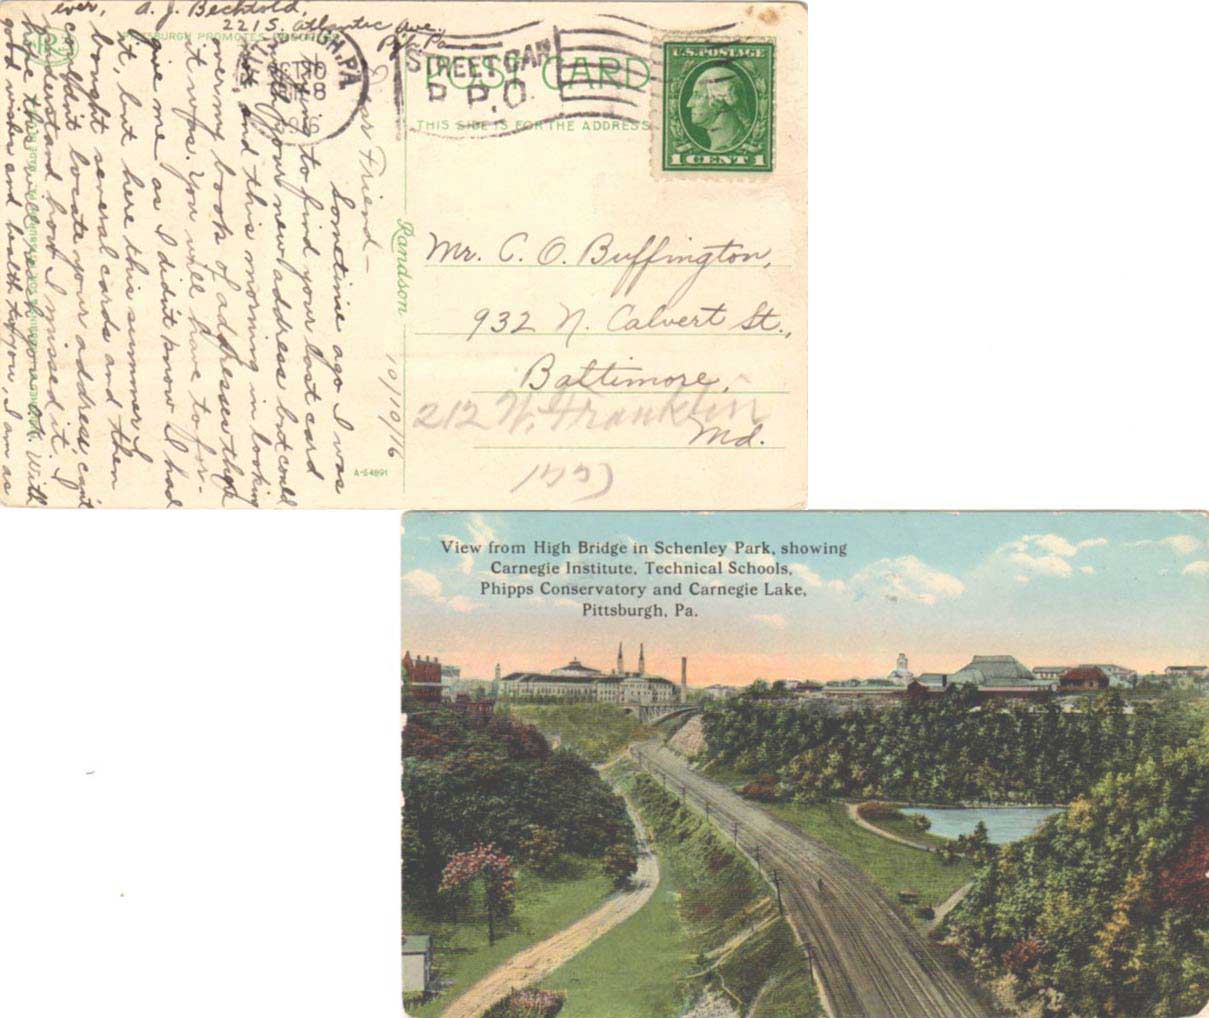 ever, A. J. Bechtold,
221 S. Atlantic Ave.
Pgh. Pa
PITTSBURGH PROMOTES
PITTSBURGH, PA.
OCT 10
1916
STREET CAR
R. P. O.
POST CARD
THIS SIDE IS FOR THE ADDRESS
U.S. POSTAGE
1 CENT 1
Dear Friend—
Sometime ago I was
trying to find your last card
with your new address but could
not, and this morning in looking
over my book of addresses there
it was. You will have to for-
give me as I didn't know I had
it, but here this summer I
bought several cards and then
couldn't locate your address, can't
understand how I missed it. I
hope this will reach you o.k. With
good wishes and health to you, I am as
10/10/16
Randson
A-54891
Mr. C. O. Buffington,
932 N. Calvert St.,
Baltimore,
212 W. Franklin
Md.
View from High Bridge in Schenley Park, showing
Carnegie Institute, Technical Schools,
Phipps Conservatory and Carnegie Lake,
Pittsburgh, Pa.